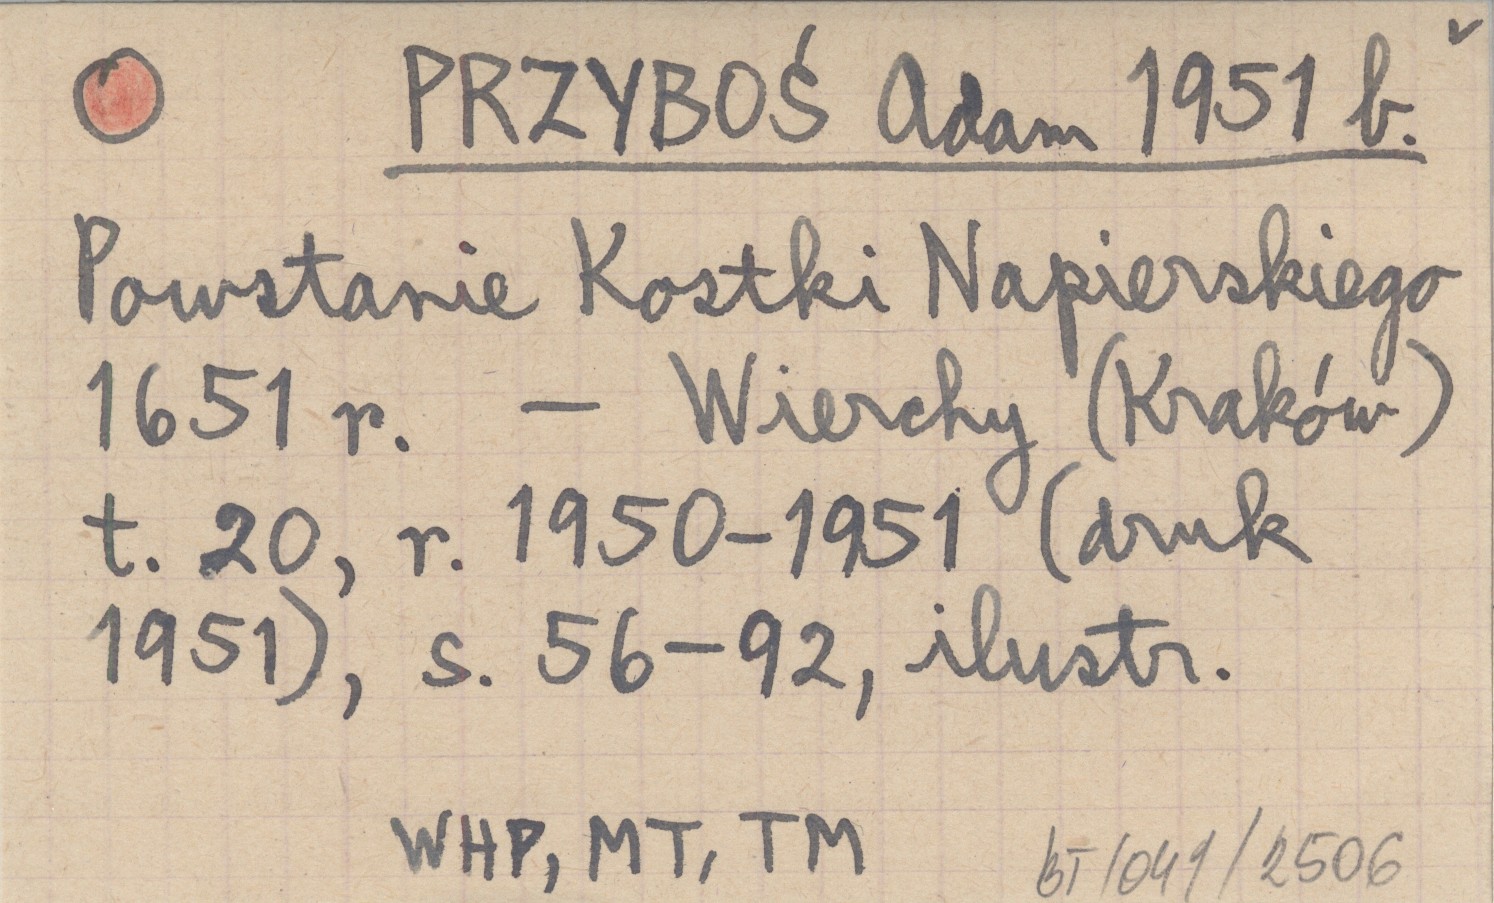 PRZYBOŚ Adam 1951 b.
Powstanie Kostki Napierskiego
1651 r. – Wierchy (Kraków)
t. 20, r. 1950–1951 (druk
1951), s. 56–92, ilustr.
WHP, MT, TM
BT/041/2506